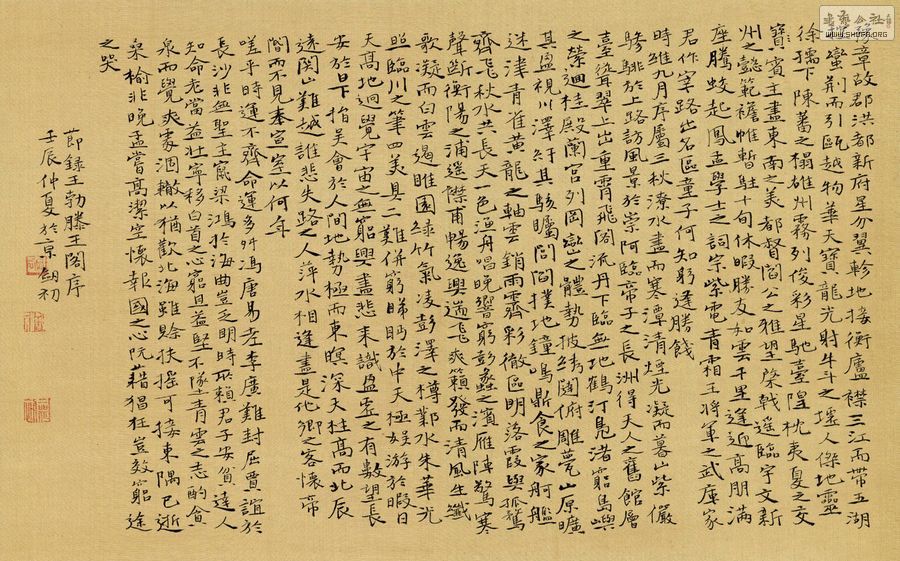 豫章故郡洪都新府星分翼軫地接衡廬襟三江而帶五湖
控蠻荊而引甌越物華天寶龍光射牛斗之墟人傑地靈
徐孺下陳蕃之榻雄州霧列俊彩星馳臺隍枕夷夏之交
賓主盡東南之美都督閻公之雅望棨戟遙臨宇文新
州之懿範襜帷暫駐十旬休暇勝友如雲千里逢迎高朋滿
座騰蛟起鳳孟學士之詞宗紫電青霜王將軍之武庫家
君作宰路出名區童子何知躬逢勝餞
時維九月序屬三秋潦水盡而寒潭清煙光凝而暮山紫儼
驂騑於上路訪風景於崇阿臨帝子之長洲得天人之舊館層
臺聳翠上出重霄飛閣流丹下臨無地鶴汀鳧渚窮島嶼
之縈迴桂殿蘭宮列岡巒之體勢披繡闥俯雕甍山原曠
其盈視川澤紆其駭矚閭閻撲地鐘鳴鼎食之家舸艦
迷津青雀黃龍之軸雲銷雨霽彩徹區明落霞與孤鶩
齊飛秋水共長天一色漁舟唱晚響窮彭蠡之濱雁陣驚寒
聲斷衡陽之浦遙襟甫暢逸興遄飛爽籟發而清風生纖
歌凝而白雲遏睢園綠竹氣凌彭澤之樽鄴水朱華光
照臨川之筆四美具二難併窮睇眄於中天極娛游於暇日
天高地迥覺宇宙之無窮興盡悲來識盈虛之有數望長
安於日下指吳會於人間地勢極而東暝深天柱高而北辰
遠關山難越誰悲失路之人萍水相逢盡是他鄉之客懷帝
閽而不見奉宣室以何年
嗟乎時運不齊命運多舛馮唐易老李廣難封屈賈誼於
長沙非無聖主竄梁鴻於海曲豈乏明時所賴君子安貧達人
知命老當益壯寧移白首之心窮且益堅不墜青雲之志酌貪
泉而覺爽處涸轍以猶歡北海雖賒扶搖可接東隅已逝
桑榆非晚孟嘗高潔空懷報國之心阮籍猖狂豈效窮途
之哭
節錄王勃滕王閣序
壬辰仲夏於京
WWW.SHUFA.ORG